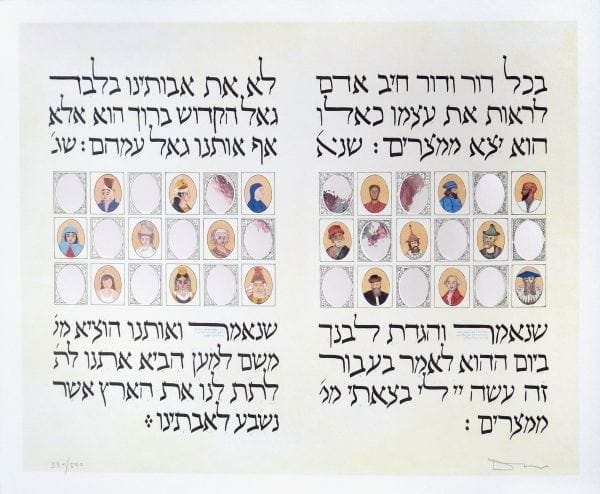 בכל דור ודור חיב אדם
לראות את עצמו כאלו
הוא יצא ממצרים: שנא
שנאמר והגדת לבנך
ביום ההוא לאמר בעבור
זה עשה יי לי בצאתי ממ
ממצרים:
לא את אבותינו בלבד
גאל הקדוש ברוך הוא אלא
אף אותנו גאל עמהם: שנ
שנאמר ואותנו הוציא מ
משם למען הביא אתנו לת
לתת לנו את הארץ אשר
נשבע לאבתינו